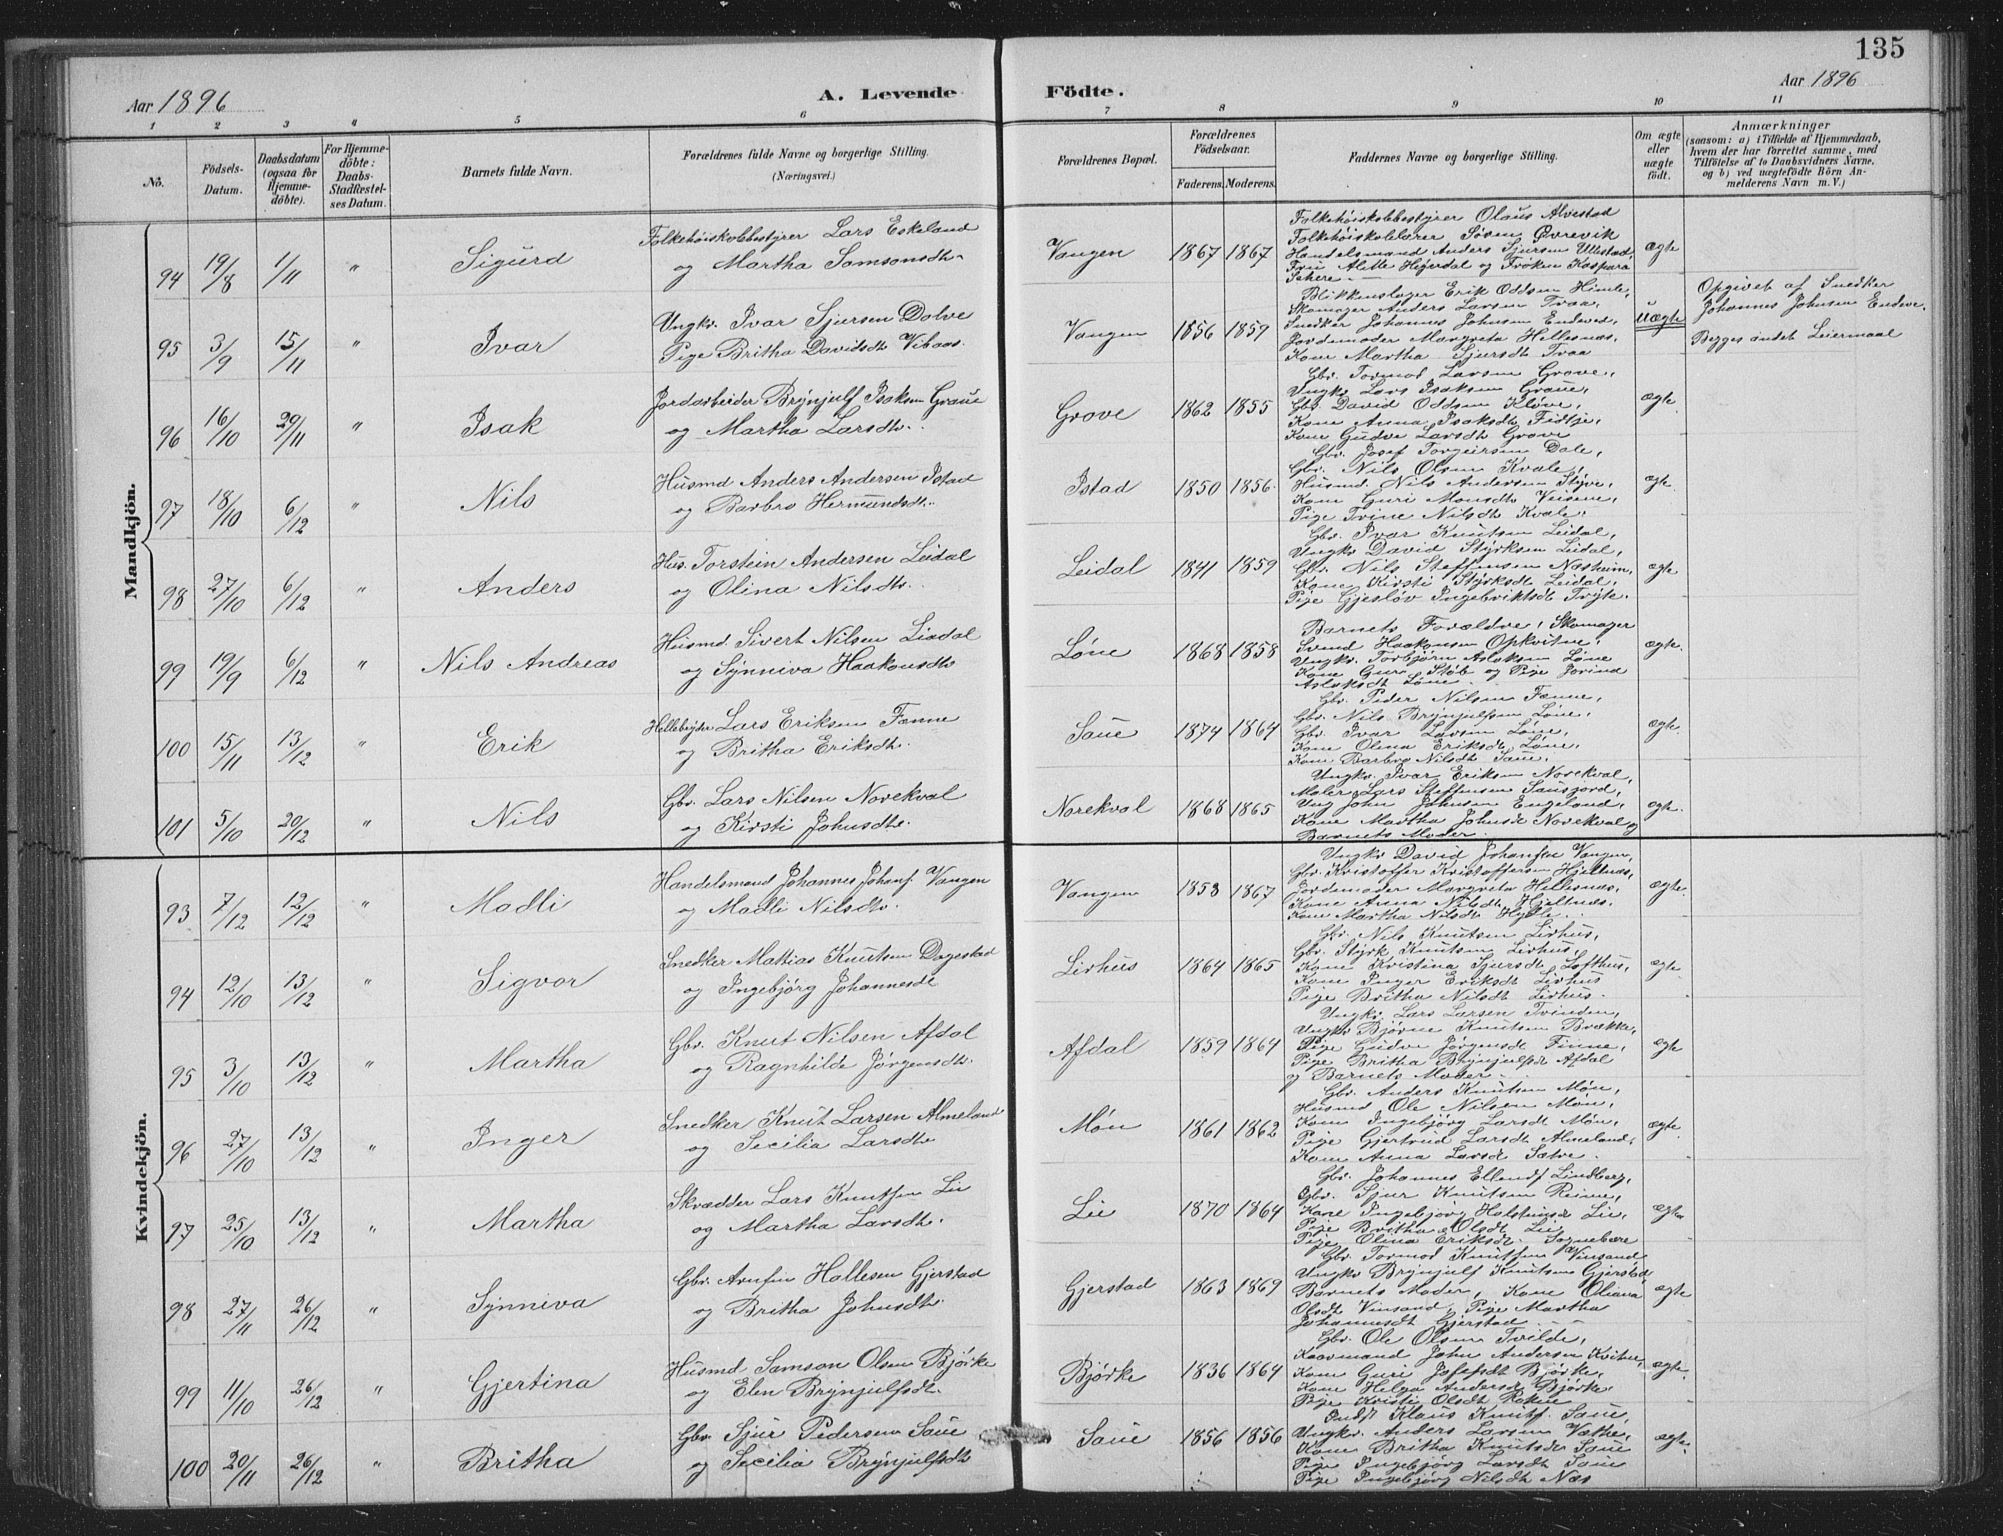 135
Aar 1896
A. Levende
Födte.
Aar 1896
1 2 3 4 5 6 7 8 9 10 11
No.
Födsels-Datum.
Daabsdatum (ogsaa for Hjemme-döbte).
For Hjemme-döbte: Daabs-Stadfæstel-ses Datum.
Barnets fulde Navn.
Forældrenes fulde Navne og borgerlige Stilling.
(Næringsvei.)
Forældrenes Bopæl.
Forældrenes Födselsaar.
Faderens. Moderens.
Faddernes Navne og borgerlige Stilling.
Om ægte eller uægte födt.
Anmærkninger
(saasom: a) i Tilfælde af Hjemmedaab, hvem der har forrettet samme, med Tilföielse af to Daabsvidners Navne, og b) ved uægtefödte Börn Anmelderens Navn m.V.)
Mandkjön.
94 19/8 1/11 " Sigurd
Folkehøiskolebestyrer Lars Eskeland
og Martha Samsonsdt.
Vangen 1867 1867
Folkehøiskolebestyrer Olaus Alvestad
Folkehøiskolelærer Søren Øvrevik
Handelsmand Anders Sjursen Ullestad,
Fru Alette Heyerdal og Frøken Kaspara
ægte
95 3/9 15/11 " Ivar
Ungkr. Ivar Sjursen Dolve
Pige Britha Davidsdt Vibaas.
Vangen 1856 1859
Blikkenslager Erik Oddsen Himle,
Skomager Anders Larsen Tvaa,
Snedker Johannes Johnsen Endeve,
Jordemoder Margreta Hellesnæs,
Kone Martha Sjursdt Tvaa
uægte
Opgivet af Snedker
Johannes Johnsen Endeve.
Begges andet Leiermaal
96 16/10 29/11 " Isak
Jordarbeider Brynjulf Isaksen Graue
og Martha Larsdt.
Grove 1862 1855
Gbr. Tormod Larsen Grove,
Ungkr Lars Isaksen Graue,
Gbr. David Oddsen Kløve,
Kone Anna Isaksdt Fidtje,
Kone Gudve Larsdt Grove
ægte
97 18/10 6/12 " Nils
Husmd Anders Andersen Istad
og Barbro Hermundsdt.
Istad 1850 1856.
Gbr. Josef Torgeirsen Dale,
Gbr. Nils Olsen Kvale,
Husmd. Nils Andersen Styve,
Kone Guri Monsdt Veisene,
Pige Trine Nilsdt Kvale.
ægte.
98 27/10 6/12 " Anders
Hus. Torstein Andersen Leidal
og Olina Nilsdt.
Leidal 1841 1859
Gbr. Ivar Knutsen Leidal,
Ungkr David Styrksen Leidal,
Gbr. Nils Steffensen Næsheim,
Kone Kirsti Styrksdt Leidal,
Pige Gjesløv Ingebriktsdt Tryte.
ægte
99 19/9 6/12 " Nils Andreas
Husmd Sivert Nilsen Liadal
og Synniva Haakonsdt
Løne 1868 1858
Barnets Forældre, Skomager
Svend Haakonsen Opkvitne,
Ungkr. Torbjørn Aslaksen Løne
Kone Guri Støb og Pige Jorind
Aslaksdt Løne.
ægte.
100 15/11 13/12 " Erik
Hellebryder Lars Eriksen Fenne
og Britha Eriksdt.
Saue 1874 1864
Gbr. Peder Nilsen Fenne,
Gbr. Nils Brynjulfsen Løne,
Gbr. Ivar Larsen Løne,
Kone Olina Eriksdt Løne,
Kone Barbro Nilsdt Saue.
ægte.
101 5/10 20/12 " Nils
Gbr. Lars Nilsen Norekval
og Kirsti Johnsdt.
Norekval 1868 1865
Ungkr. Ivar Eriksen Norekval,
Maler Lars Steffensen Sausjord,
Ung John Johnsen Engeland,
Kone Martha Johnsdt Norekval og
Barnets Moder.
ægte.
Kvindekjön.
93 7/12 12/12 " Madli
Handelsmand Johannes Johans. Vangen
og Madli Nilsdt.
Vangen 1853 1867
Ungkr David Johansen Vangen,
Gbr. Kristoffer Kristoffersen Hjeltnæs,
Jordemoder Margreta Hellesnæs,
Kone Anna Nilsdt Hjeltnæs.
Kone Martha Nilsdt Hylle.
ægte.
94 12/10 13/12 " Sigvor
Snedker Mattias Knutsen Dagestad
og Ingebjørg Johannesdt
Lirhus 1864 1865
Gbr. Nils Knutsen Lirhus,
Gbr. Styrk Knutsen Lirhus,
Kone Kristina Sjursdt Lofthus,
Kone Inger Eriksdt Lirhus
Pige Britha Nilsdt Lirhus.
ægte
95 3/10 13/12 " Martha
Gbr. Knut Nilsen Afdal
og Ragnhilde Jørgensdt.
Afdal 1859 1864
Ungkr. Lars Larsen Tvinden,
Ungkr Bjørne Knutsen Brække,
Pige Gudve Jørgensdt Finne,
Pige Britha Brynjulfsdt Afdal
og Barnets Moder.
ægte
96 27/10 13/12 " Inger
Snedker Knut Larsen Almeland
og Secilia Larsdt
Møn 1861 1862
Gbr. Anders Knutsen Møn,
Husmd Ole Nilsen Møn,
Kone Ingebjørg Larsdt Møn,
Pige Gjertrud Larsdt Almeland,
Kone Anna Larsdt Sætre.
ægte.
97 25/10 13/12 " Martha
Skrædder Lars Knutsen Lu
og Martha Larsdt.
Lie 1870 1864
Gbr. Johannes Ellends. Lindberg,
Gbr. Sjur Knutsen Reime,
Kone Ingebjørg Holsteinsdt Lie,
Pige Britha Olsdt Lie,
Pige Olina Eriksdt.
ægte
98 27/11 26/12 " Synniva
Gbr. Arnfin Hallesen Gjerstad
og Britha Johnsdt.
Gjerstad 1863 1869
Gbr. Tormod Knutsen Vinsand
Ungkr Brynjulf Knutsen Gjerstad,
Barnets Moder, Kone Oliana
Olsdt Vinsand, Pige Martha
Johannesdt Gjerstad.
ægte
99 11/10 26/12 " Gjertina
Husmd Samson Olsen Bjørke
og Elen Brynjulfsdt.
Bjørke 1836 1864
Gbr. Ole Olsen Tvilde,
Kaarmand John Andersen Kvitne,
Kone Guri Josefsdt Bjørke,
Kone Helga Andersdt Bjørke.
Pige Kristi Olsdt Rokne
ægte.
100 20/11 26/12 " Britha
Gbr. Sjur Pedersen Saue
og Secilia Brynjulfsdt
Saue 1856 1856
Klaus Knuts. Saue,
Ungkr. Anders Larsen Væthe,
Kone Britha Knutsdt Saue
Pige Ingebjørg Larsdt Saue
Pige Ingebjørg Nilsdt Næs
ægte.